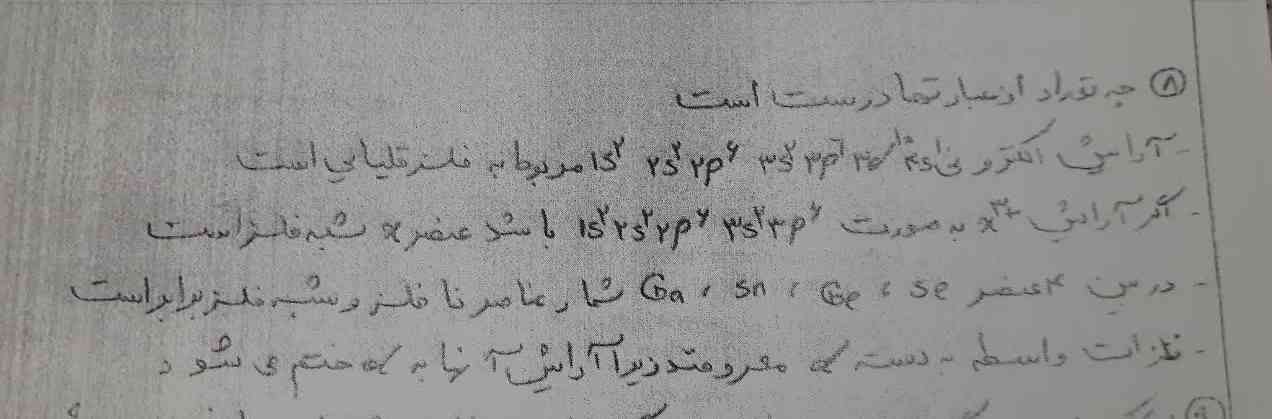 ۸ چه تعداد از عبارتها درست است
- آرایش الکترونی ۱s۲ ۲s۲ ۲p۶ ۳s۲ ۳p۶ ۴s۱ مربوط به فلز قلیایی است
- اگر آرایش x۳+ به صورت ۱s۲ ۲s۲ ۲p۶ ۳s۲ ۳p۶ باشد عنصر x شبه فلز است
- در بین ۴ عنصر Se ، Ge ، Sn ، Ga شمار عناصر نافلز و شبه فلز برابر است
- فلزات واسطه به دسته معروفند زیرا آرایش آنها به ختم می شود